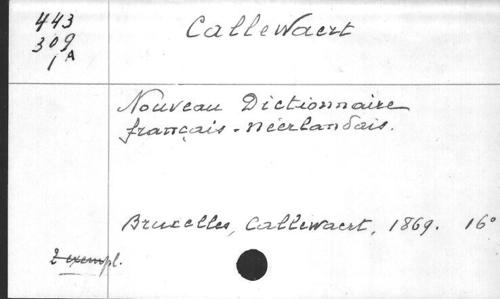 443
309
1 A
Callewaert
Nouveau Dictionnaire
français-néerlandais.
Bruxelles, Callewaert, 1869. 16°
2 exempl.